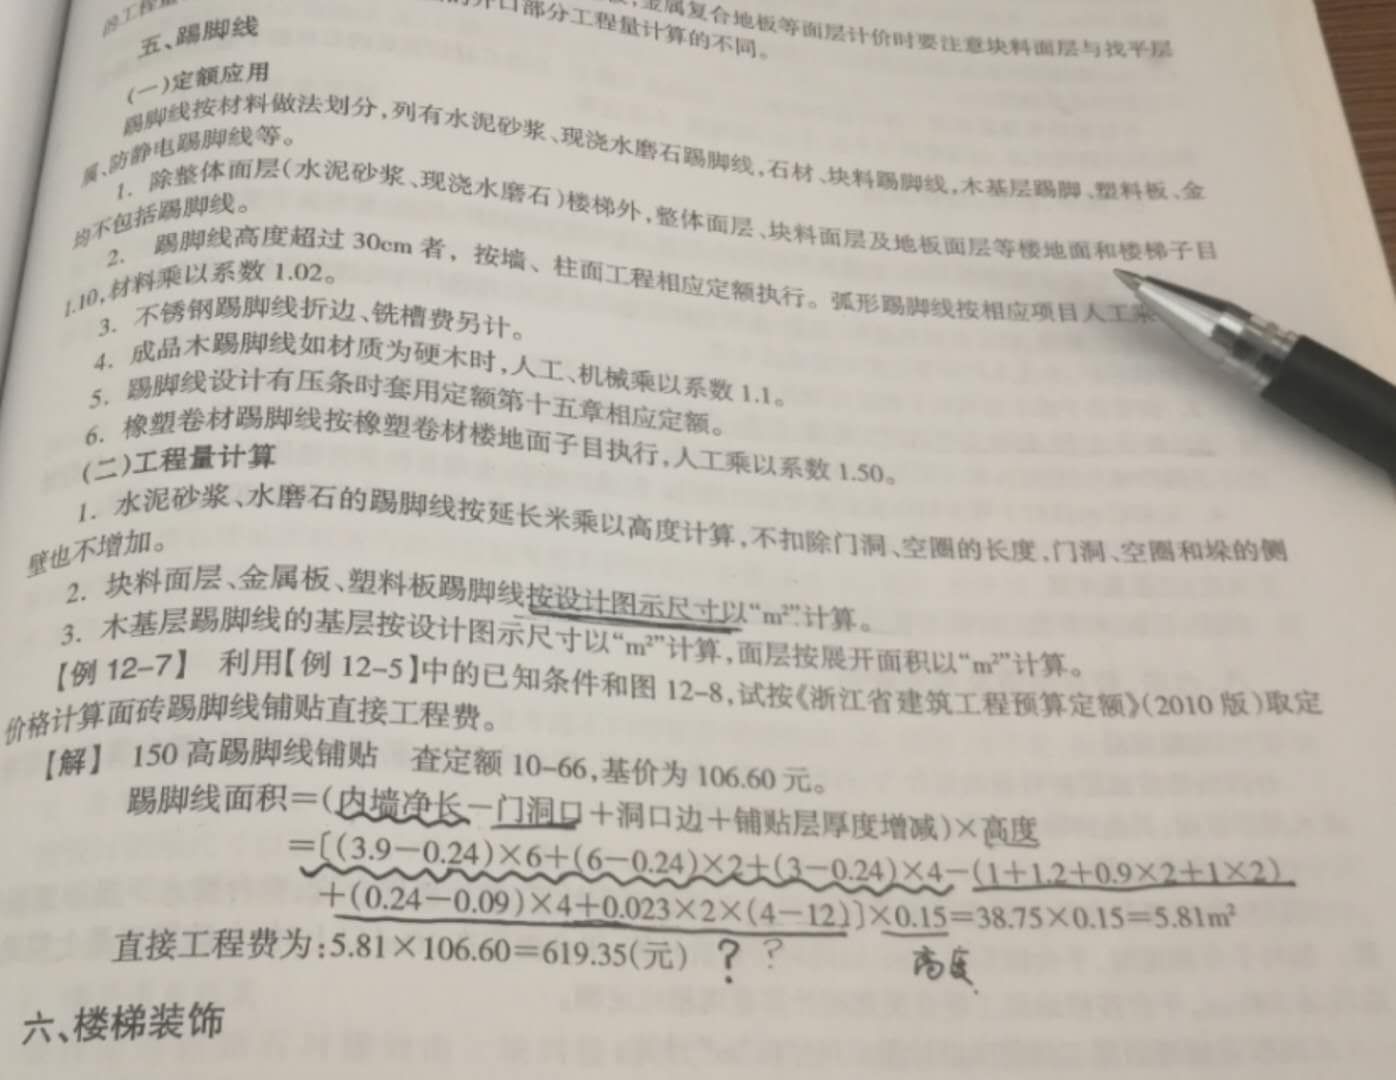 的工程量
金属复合地板等面层计价时要注意块料面层与找平层
的开口部分工程量计算的不同。
五、踢脚线
(一)定额应用
踢脚线按材料做法划分,列有水泥砂浆、现浇水磨石踢脚线,石材、块料踢脚线,木基层踢脚、塑料板、金
属、防静电踢脚线等。
1. 除整体面层(水泥砂浆、现浇水磨石)楼梯外,整体面层、块料面层及地板面层等楼地面和楼梯子目
均不包括踢脚线。
2. 踢脚线高度超过 30cm 者，按墙、柱面工程相应定额执行。弧形踢脚线按相应项目人工乘
1.10,材料乘以系数 1.02。
3. 不锈钢踢脚线折边、铣槽费另计。
4. 成品木踢脚线如材质为硬木时,人工、机械乘以系数 1.1。
5. 踢脚线设计有压条时套用定额第十五章相应定额。
6. 橡塑卷材踢脚线按橡塑卷材楼地面子目执行,人工乘以系数 1.50。
(二)工程量计算
1. 水泥砂浆、水磨石的踢脚线按延长米乘以高度计算,不扣除门洞、空圈的长度,门洞、空圈和垛的侧
壁也不增加。
2. 块料面层、金属板、塑料板踢脚线按设计图示尺寸以“m²”计算。
3. 木基层踢脚线的基层按设计图示尺寸以“m²”计算,面层按展开面积以“m²”计算。
【例 12-7】 利用【例 12-5】中的已知条件和图 12-8,试按《浙江省建筑工程预算定额》(2010 版)取定
价格计算面砖踢脚线铺贴直接工程费。
【解】 150 高踢脚线铺贴 查定额 10-66,基价为 106.60 元。
踢脚线面积=(内墙净长-门洞口+洞口边+铺贴层厚度增减)×高度
=[(3.9-0.24)×6+(6-0.24)×2+(3-0.24)×4-(1+1.2+0.9×2+1×2)
+(0.24-0.09)×4+0.023×2×(4-12)]×0.15=38.75×0.15=5.81m²
直接工程费为:5.81×106.60=619.35(元) ? ?
高度
六、楼梯装饰